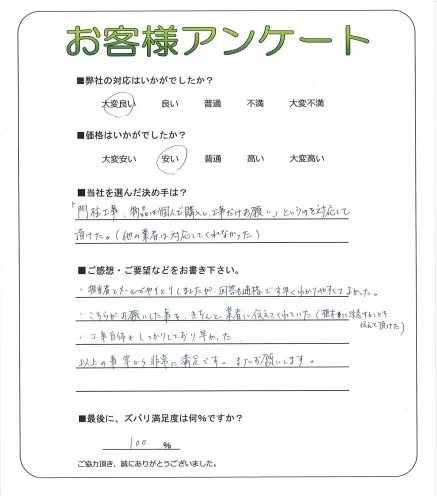 お客様アンケート
■弊社の対応はいかがでしたか？
大変良い 良い 普通 不満 大変不満
■価格はいかがでしたか？
大変安い 安い 普通 高い 大変高い
■当社を選んだ決め手は？
「門柱工事、物品は個人で購入し、工事だけお願い」というのを対応して
頂けた。（他の業者は対応してくれなかった）
■ご感想・ご要望などをお書き下さい。
・担当者とメールでやりとりしましたが、回答も適格で す早くわかりやすくてよかった。
・こちらがお願いした事を、きちんと業者に伝えてくれていた（ に注意することを
伝えて頂けた）
・工事自体もしっかりしており早かった
以上の事 から非常に満足です。またお願いします。
■最後に、ズバリ満足度は何％ですか？
100 ％
ご協力頂き、誠にありがとうございました。